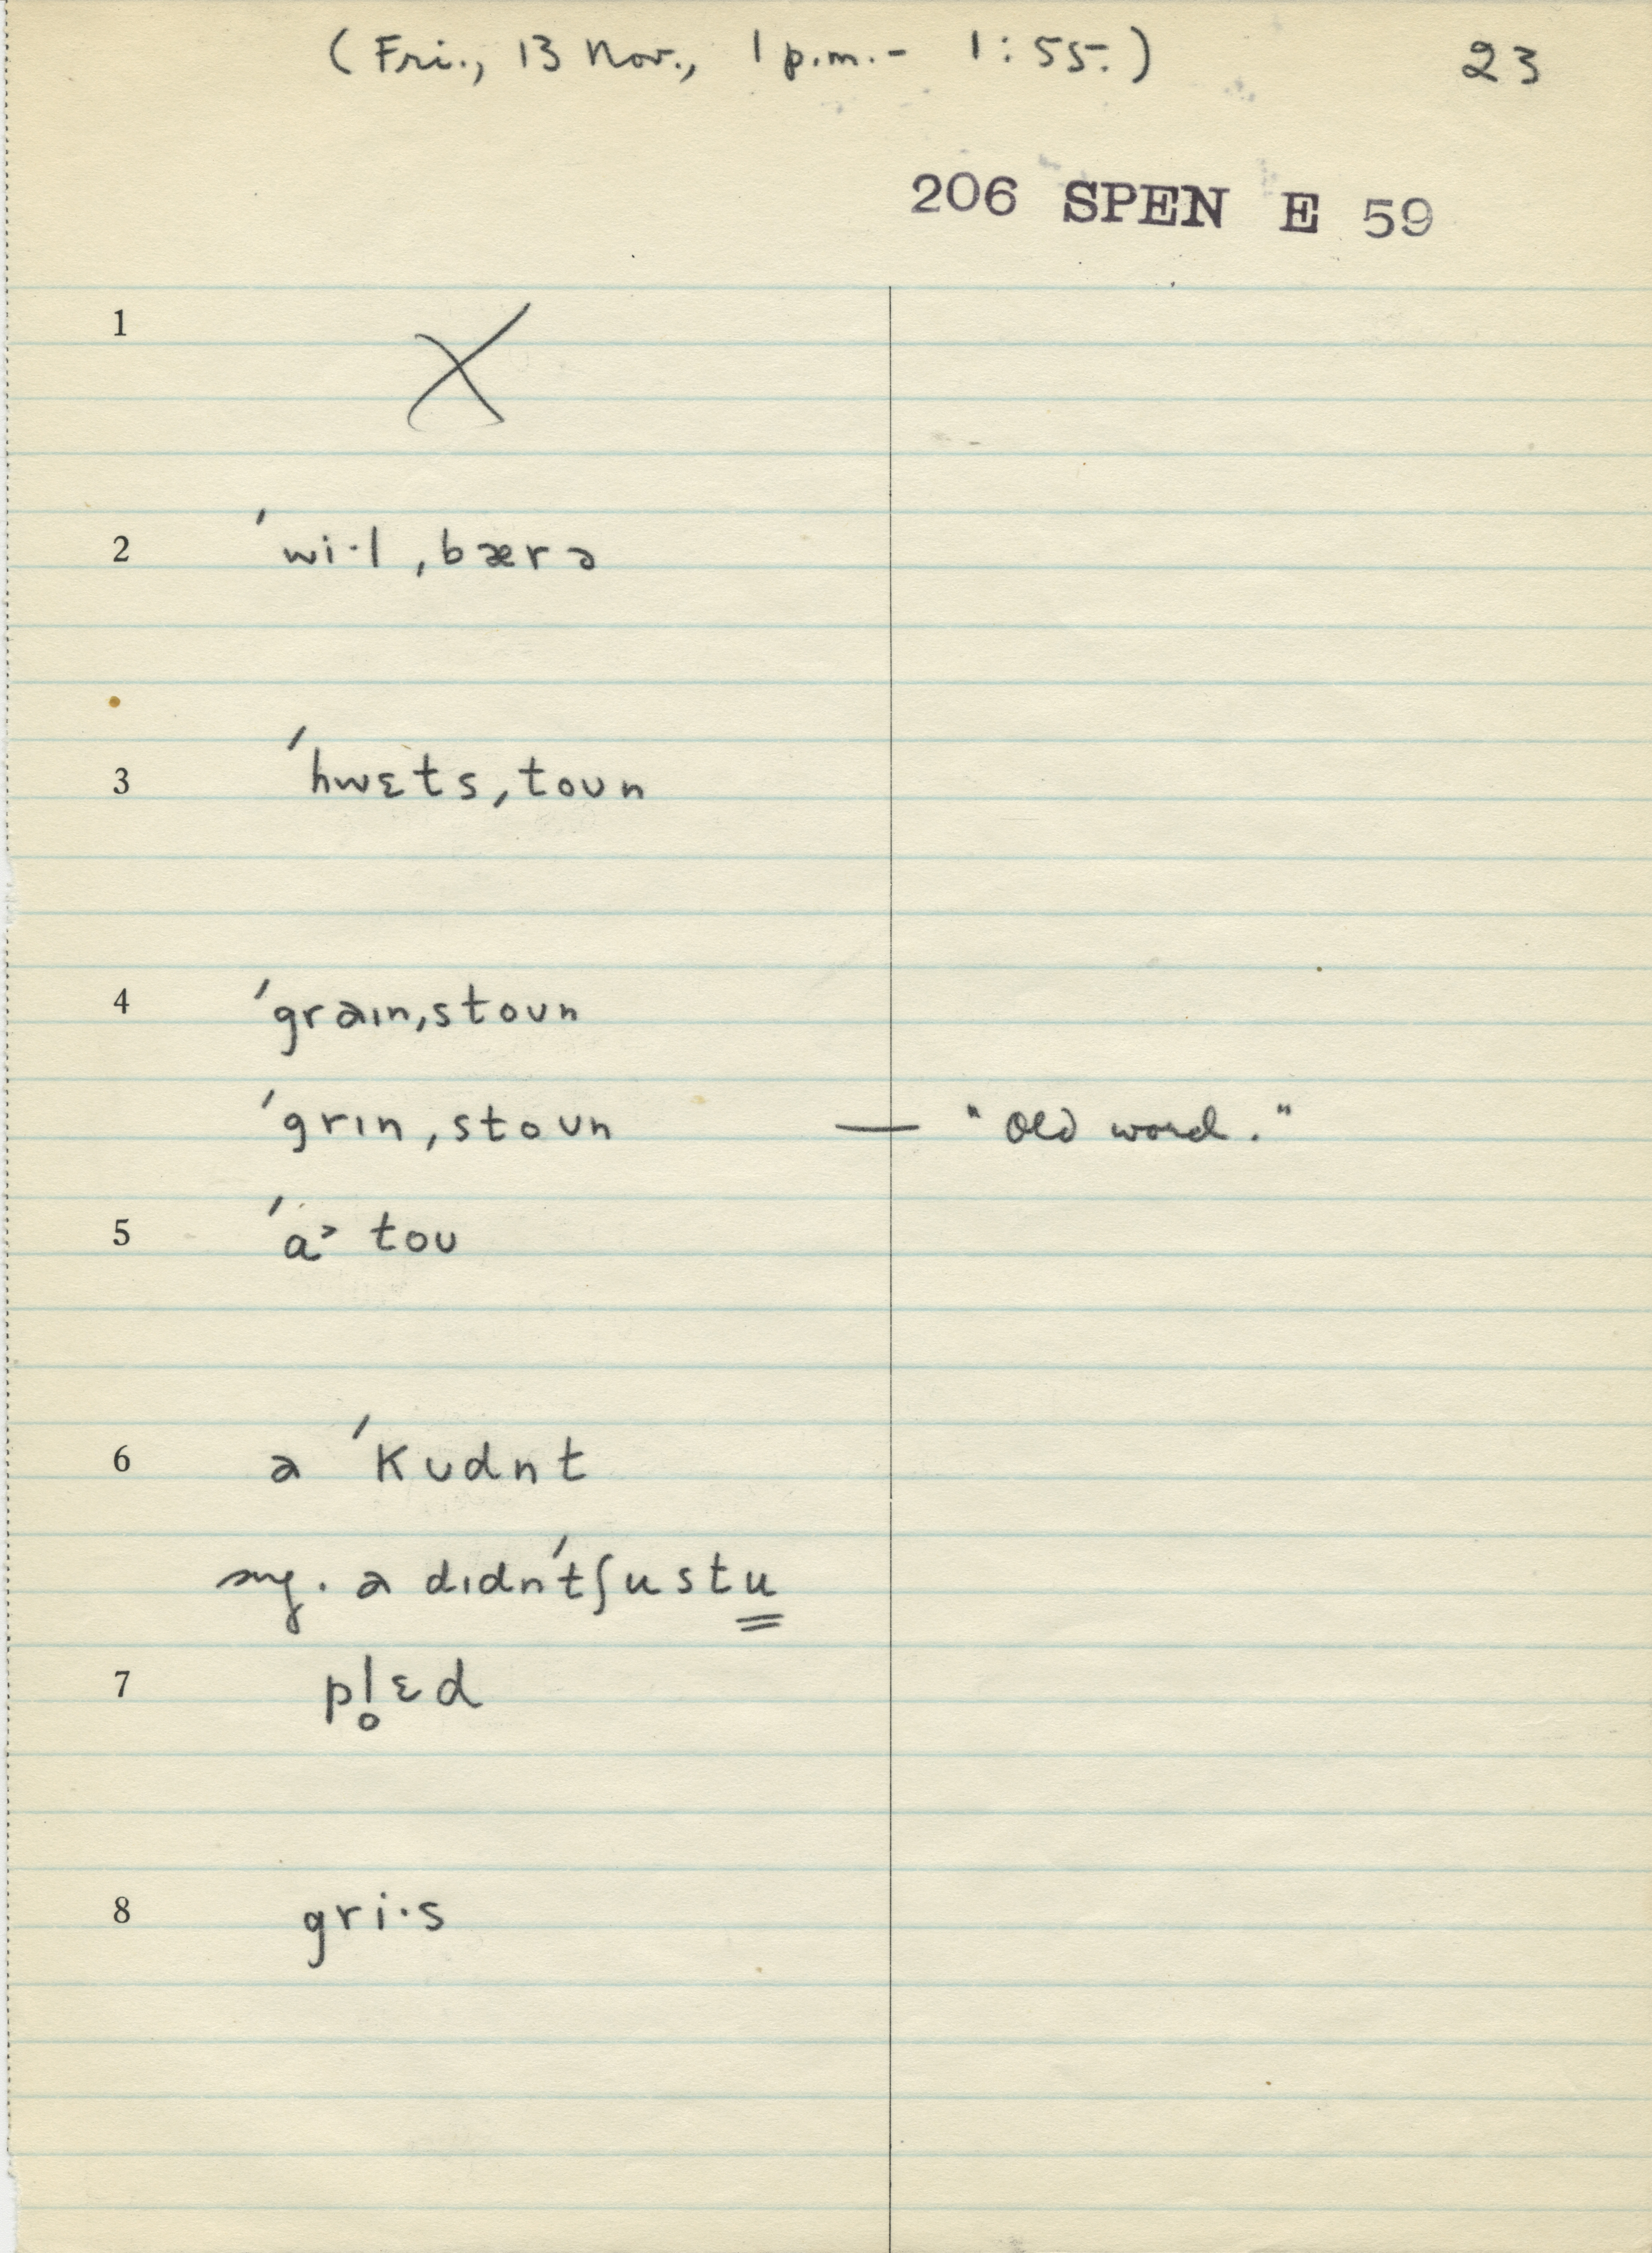 (Fri., 13 Nov., 1 p.m.- 1:55.) 23
206 SPEN E 59
1 X
2 ˈwi·l ˌbærə
3 ˈhwɛtsˌtoʊn
4 ˈgraɪnˌstoʊn
ˈgrɪnˌstoʊn — "Old word."
5 ˈa˃ toʊ
6 a ˈkʊdnt
a dɪdnˈtʃustu
7 pl̥ɛd
8 gri·s